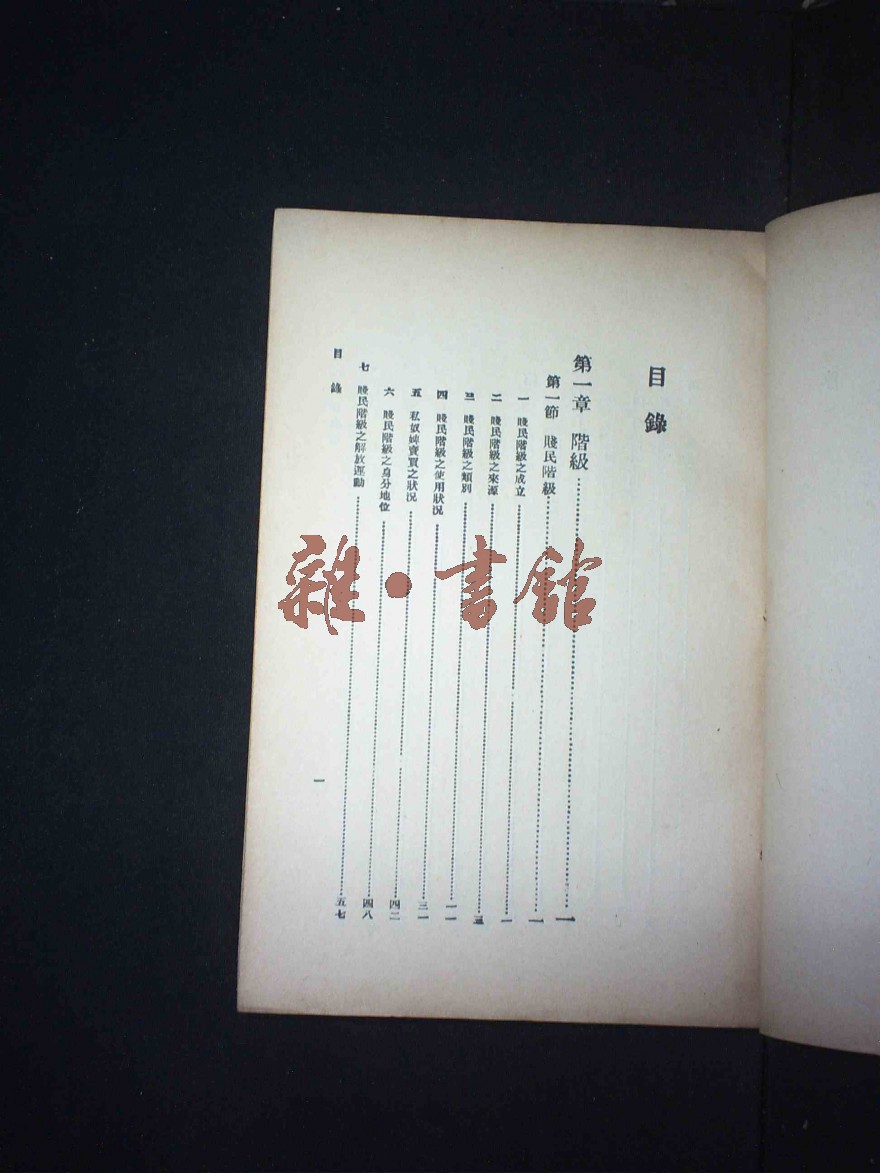 目錄
第一章 階級……一
第一節 賤民階級……一
一 賤民階級之成立……一
二 賤民階級之來源……三
三 賤民階級之類別……一一
四 賤民階級之使用狀況……三一
五 私奴婢賣買之狀況……四二
六 賤民階級之身分地位……四八
七 賤民階級之解放運動……五七
目錄
一
雜·書館